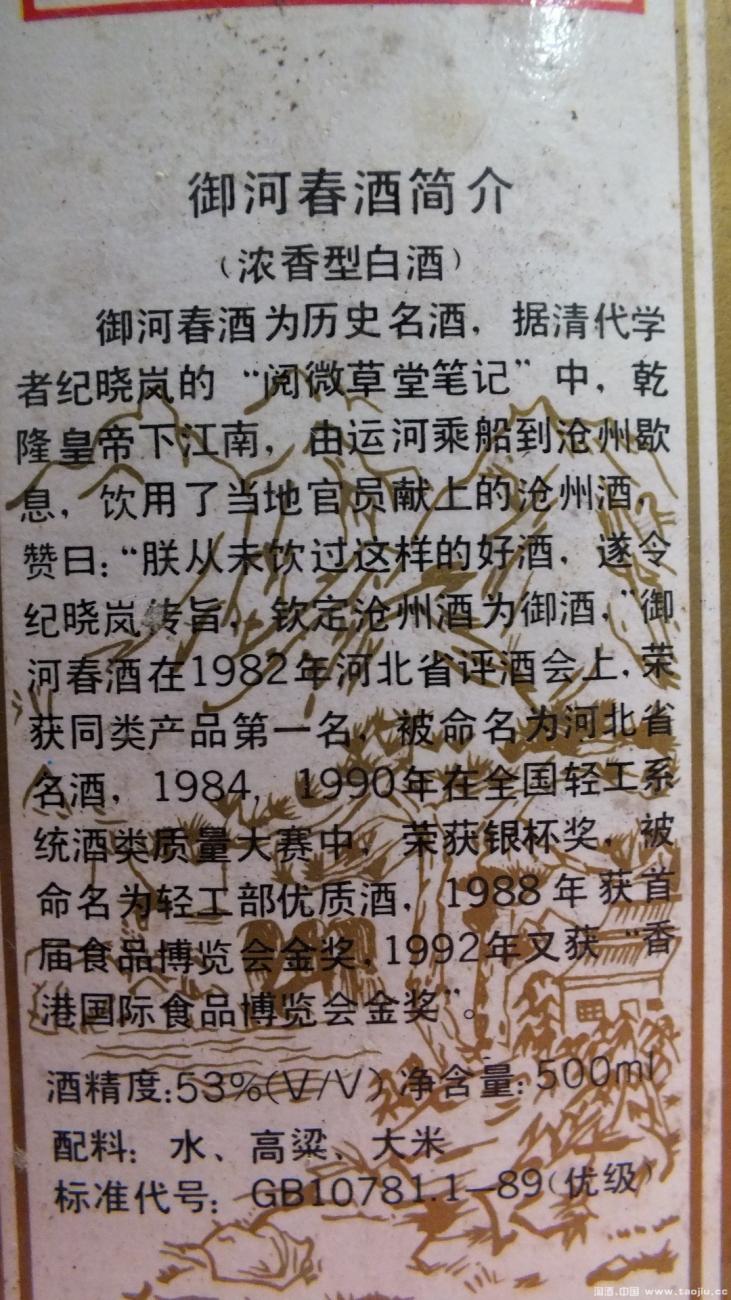 御河春酒简介
（浓香型白酒）
御河春酒为历史名酒，据清代学
者纪晓岚的“阅微草堂笔记”中，乾
隆皇帝下江南，由运河乘船到沧州歇
息，饮用了当地官员献上的沧州酒，
赞曰：“朕从未饮过这样的好酒，遂令
纪晓岚传旨，钦定沧州酒为御酒，”御
河春酒在1982年河北省评酒会上，荣
获同类产品第一名，被命名为河北省
名酒，1984，1990年在全国轻工系
统酒类质量大赛中，荣获银杯奖，被
命名为轻工部优质酒，1988年获首
届食品博览会金奖，1992年又获“香
港国际食品博览会金奖”。
酒精度：53%(V/V) 净含量：500ml
配料：水、高粱、大米
标准代号：GB10781.1—89（优级）
淘酒.中国 www.taojiu.cc